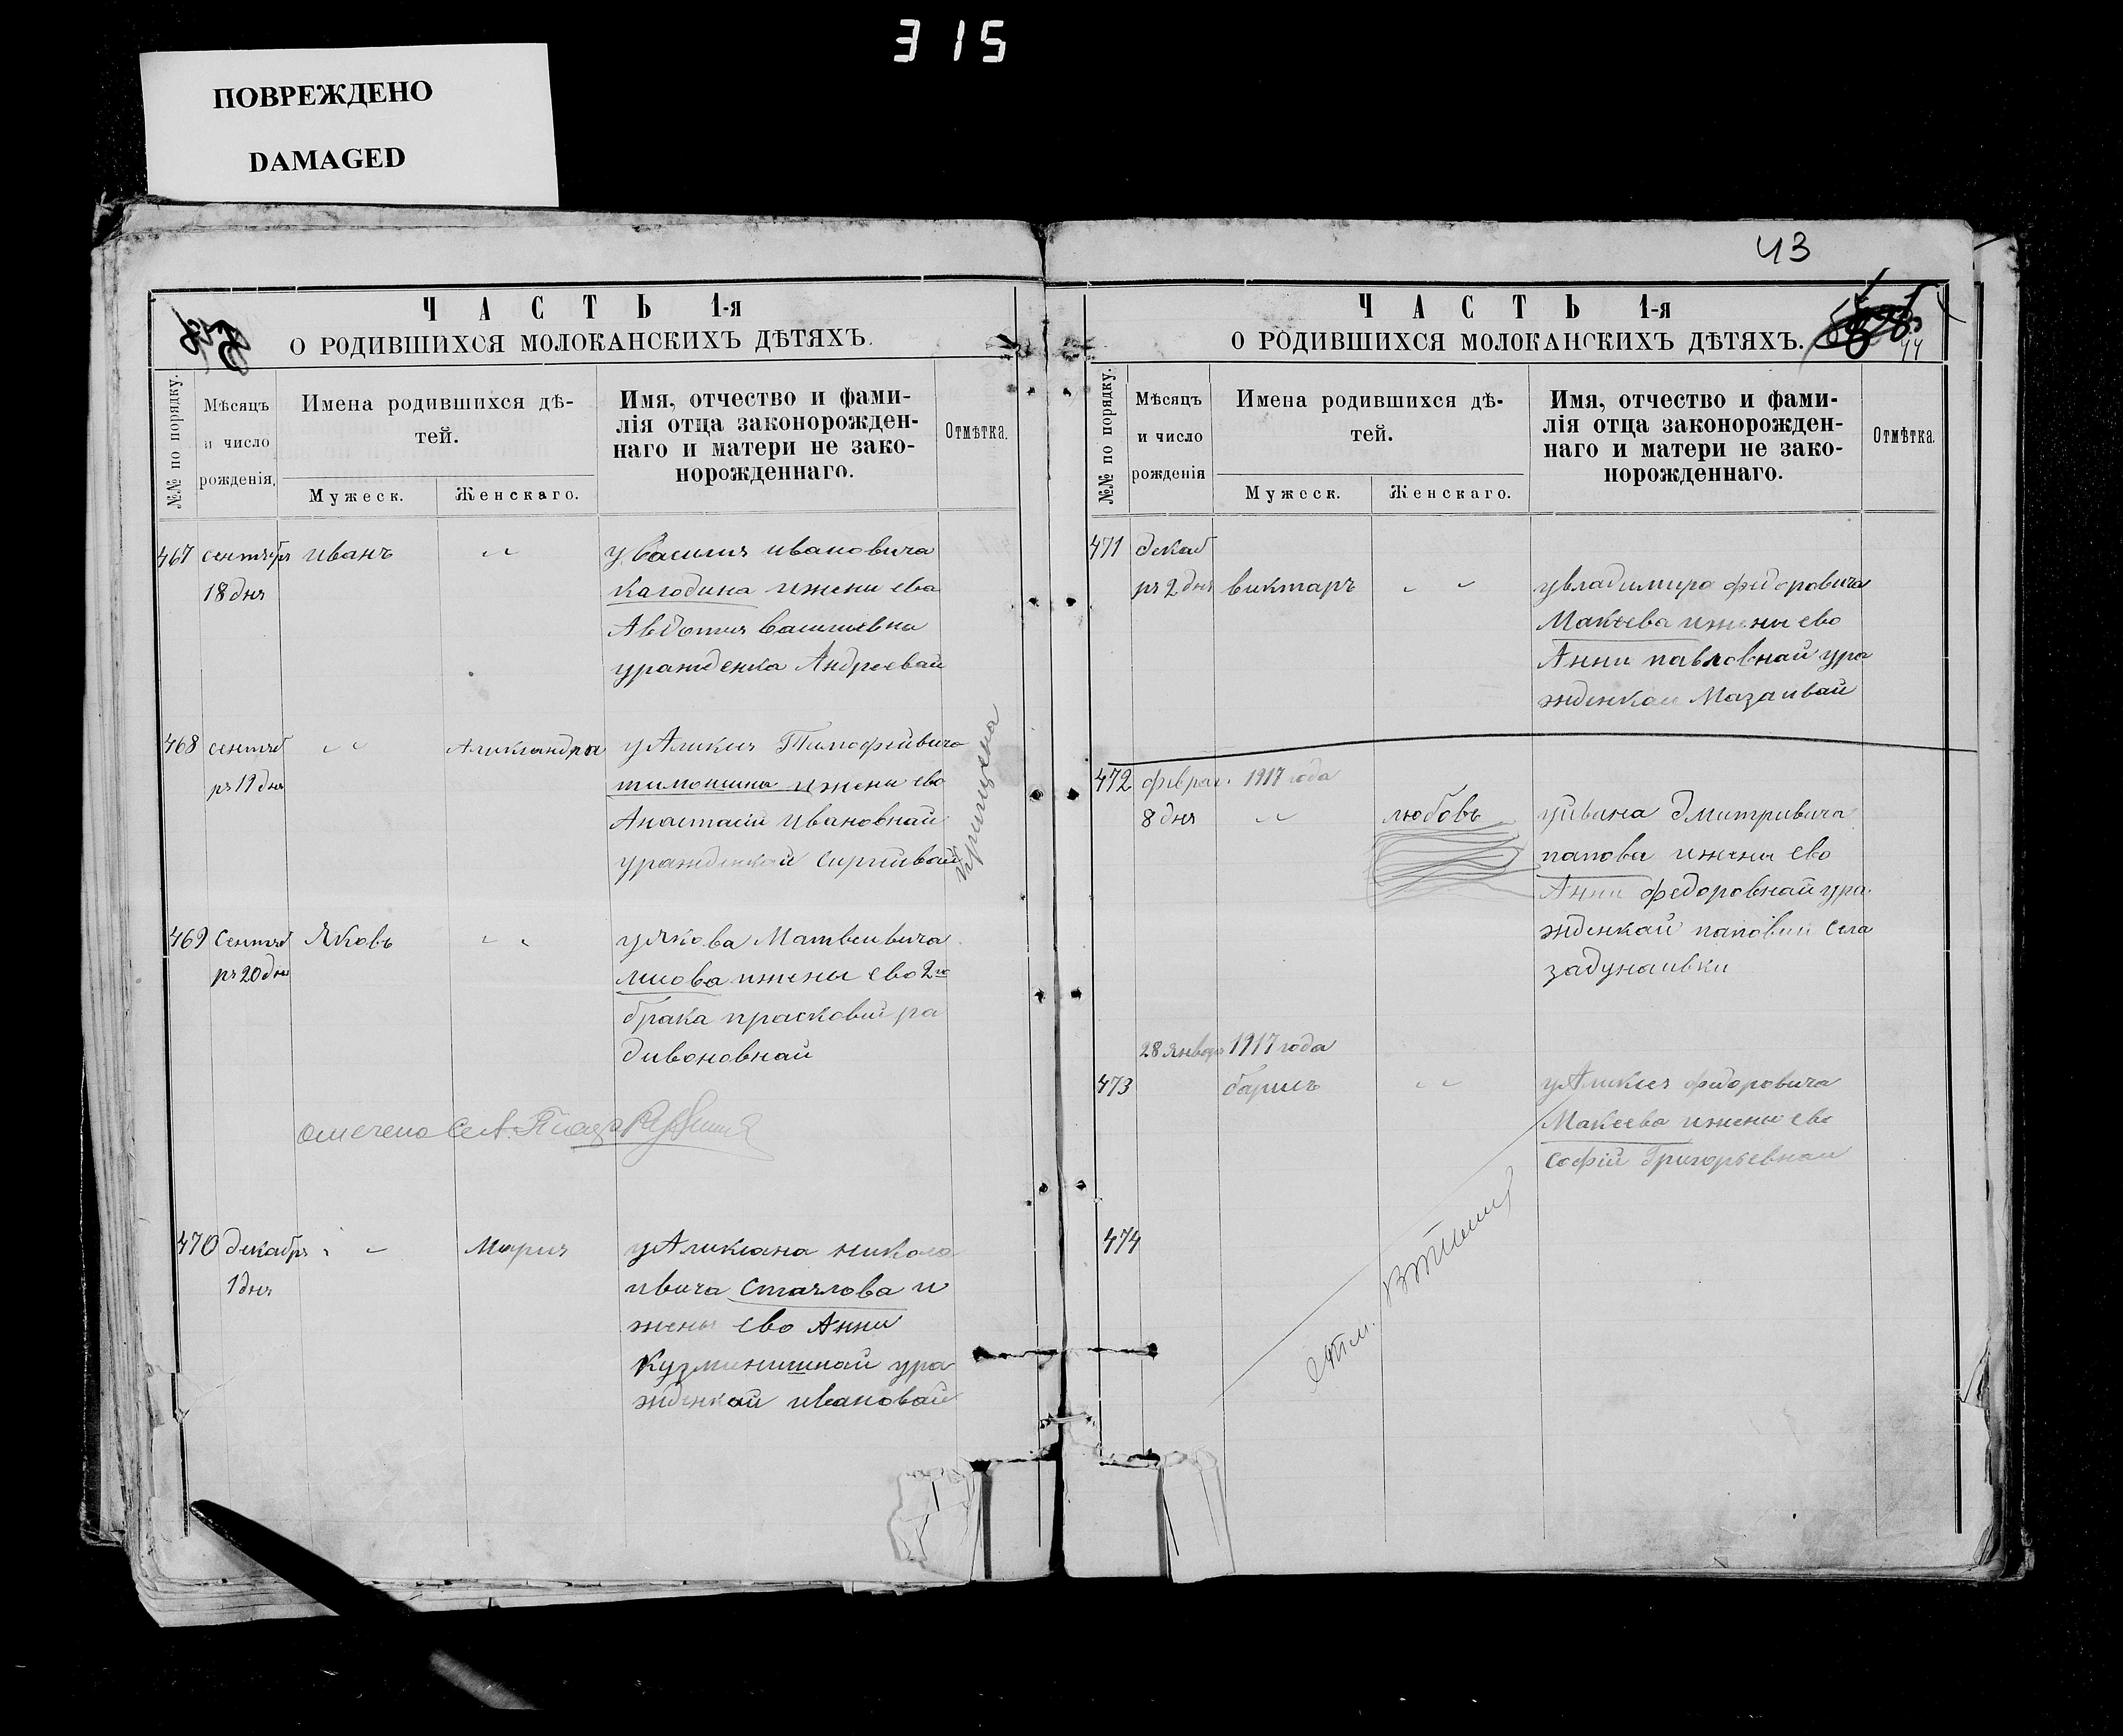 315
ПОВРЕЖДЕНО
DAMAGED
ЧАСТЬ 1-я
О РОДИВШИХСЯ МОЛОКАНСКИХЪ ДѢТЯХЪ.
№№ по порядку.
Мѣсяцъ
и число
рожденія,
Имена родившихся дѣ-
тей.
Мужеск.
Женскаго.
Имя, отчество и фами-
лія отца законорожден-
наго и матери не зако-
норожденнаго.
Отмѣтка.
467 сентябр иванъ у василия ивановича
18 дня кагодина ижени ева
Авдотия василиевна
уражденка Андреевай
468 сентяб Аликсандра у Аликия Тимофеивича
ръ 19 дня тимошина ижени ево
Анастасіи ивановнай
уражденкай сиргиивай
469 Сентяб Яковъ у якова Матвеивича
ръ 20 дня ижены ево 2го
брака прасковіи ра
дивоновнай
470 декабрь Мария у Аликсана никола
1 дня ивича и
жены ево Анни
Кузминишнай ура
жденкай ивановай
43
ЧАСТЬ 1-я
О РОДИВШИХСЯ МОЛОКАНСКИХЪ ДѢТЯХЪ.
44
№№ по порядку.
Мѣсяцъ
и число
рожденія
Имена родившихся дѣ-
тей.
Мужеск.
Женскаго.
Имя, отчество и фами-
лія отца законорожден-
наго и матери не зако-
норожденнаго.
Отмѣтка.
471 декаб
ръ 2 дня виктаръ увладимира фидоровича
Макеева ижены ево
Анни павловнай ура
жденкаи Мазаивай
472 феврал. 1917 года
8 дня любовь уйвана Дмитривича
папова ижены ево
Анни федоровнай ура
жденкай паповаи села
задунаивки
28 январ 1917 года
473 барисъ у Аликия фидоровича
Макеева ижены ево
Софіи Григорьевнаи
474